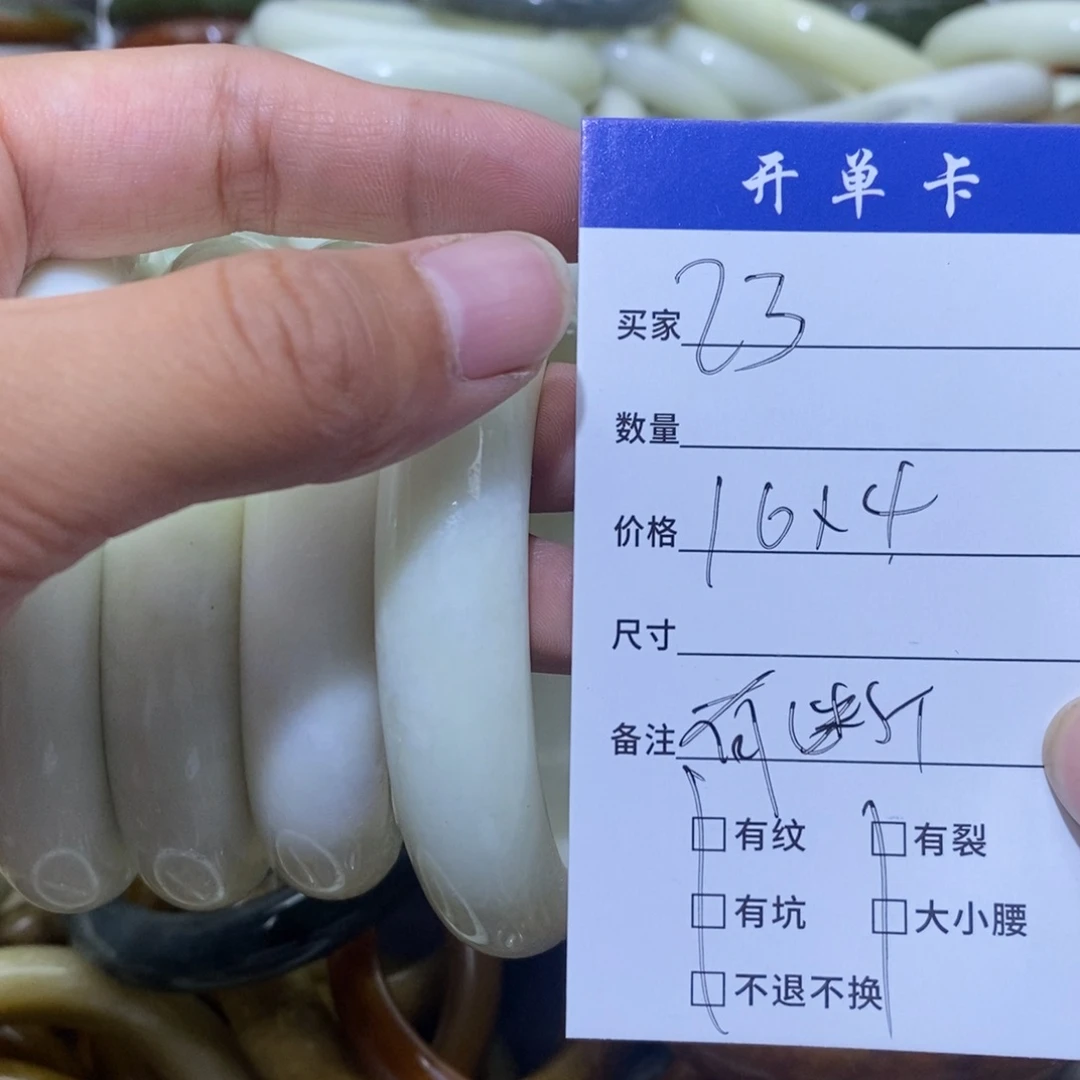 开单卡
买家 23
数量
价格 16x4
尺寸
备注 有
□有纹 □有裂
□有坑 □大小腰
□不退不换